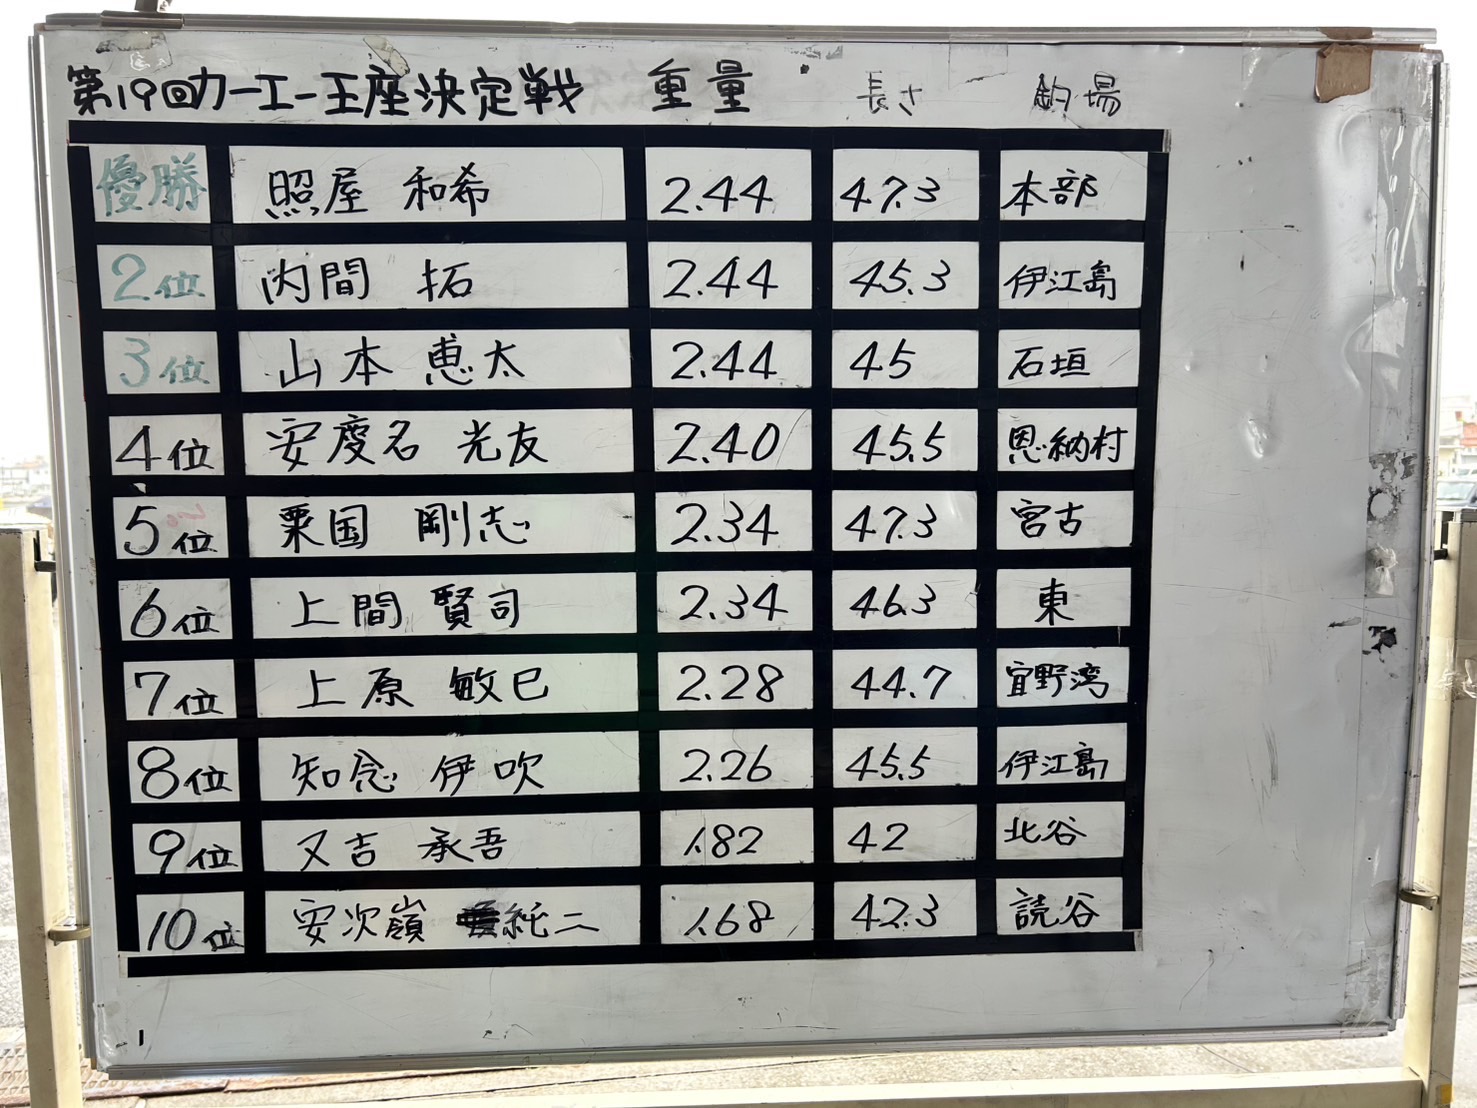 第19回カーエー王座決定戦 重量 長さ 釣場
優勝 照屋 和希 2.44 47.3 本部
2位 内間 拓 2.44 45.3 伊江島
3位 山本 恵太 2.44 45 石垣
4位 安慶名 光友 2.40 45.5 恩納村
5位 粟国 剛志 2.34 47.3 宮古
6位 上間 賢司 2.34 46.3 東
7位 上原 敏巳 2.28 44.7 宜野湾
8位 知念 伊吹 2.26 45.5 伊江島
9位 又吉 承吾 1.82 42 北谷
10位 安次嶺 純二 1.68 42.3 読谷